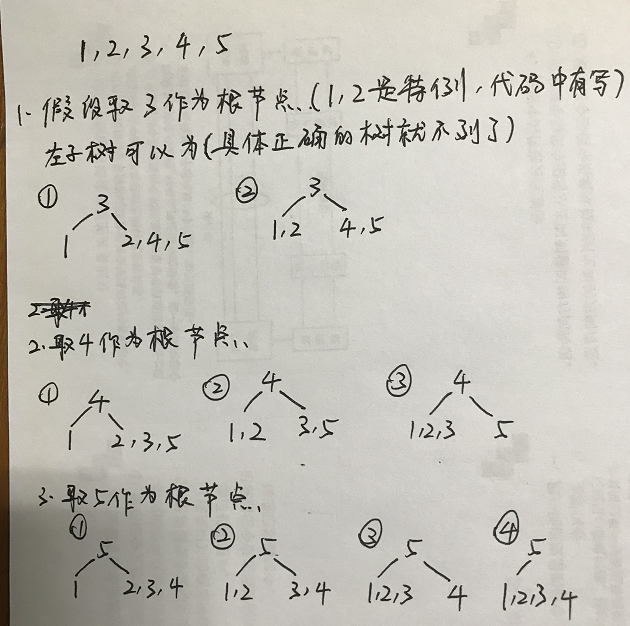 1,2,3,4,5
1. 假设取3作为根节点.(1,2是特例,代码中有写)
左子树可以为(具体正确的树就不列了)
① ②
3 3
1 2,4,5 1,2 4,5
2.取4作为根节点.
① ② ③
4 4 4
1 2,3,5 1,2 3,5 1,2,3 5
3.取5作为根节点.
① ② ③ ④
5 5 5 5
1 2,3,4 1,2 3,4 1,2,3 4 1,2,3,4